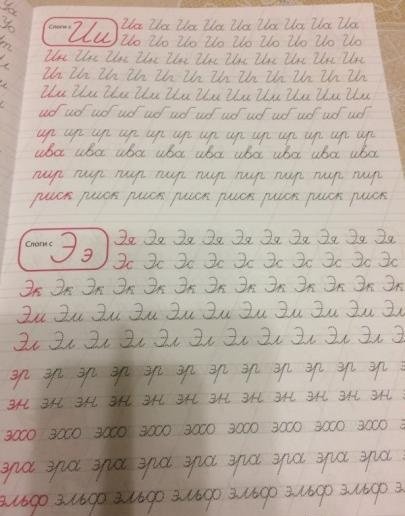 Слоги с Ии Иа Иа Иа Иа Иа Иа Иа Иа Иа
Ио Ио Ио Ио Ио Ио Ио Ио Ио
Ин Ин Ин Ин Ин Ин Ин Ин Ин Ин Ин
Иг Иг Иг Иг Иг Иг Иг Иг Иг Иг Иг Иг
Им Им Им Им Им Им Им Им Им Им Им
иб иб иб иб иб иб иб иб иб иб иб иб
ир ир ир ир ир ир ир ир ир ир ир ир ир
ива ива ива ива ива ива ива ива ива
пир пир пир пир пир пир пир пир пир
риск риск риск риск риск риск риск риск
Слоги с Ээ Эя Эя Эя Эя Эя Эя Эя Эя Эя Эя
Эс Эс Эс Эс Эс Эс Эс Эс Эс Эс
Эк Эк Эк Эк Эк Эк Эк Эк Эк Эк Эк Эк Эк
Эм Эм Эм Эм Эм Эм Эм Эм Эм Эм
Эл Эл Эл Эл Эл Эл Эл Эл Эл Эл Эл
эр эр эр эр эр эр эр эр эр эр эр эр
эн эн эн эн эн эн эн эн эн эн эн
эхо эхо эхо эхо эхо эхо эхо эхо эхо
эра эра эра эра эра эра эра эра эра
эльф эльф эльф эльф эльф эльф эльф